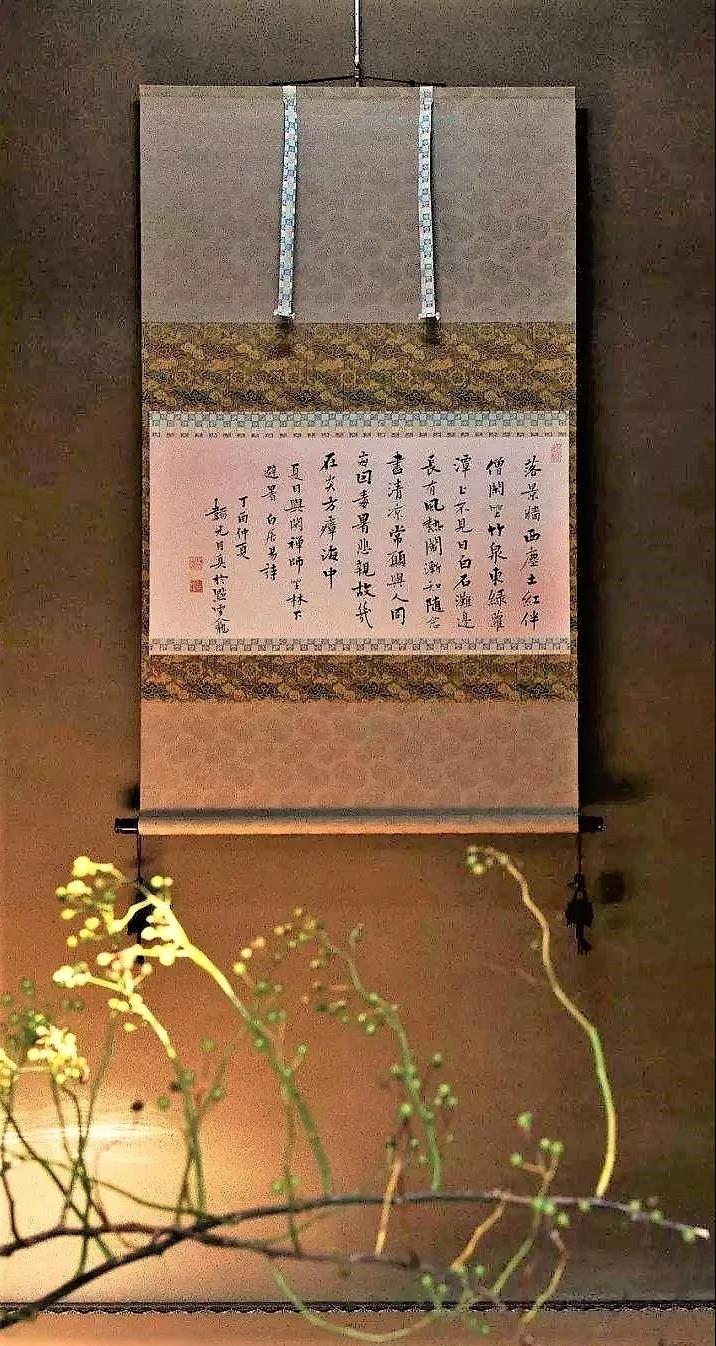 落景墻西塵土紅伴
僧閑坐竹泉東綠蘿
潭上不見日白石灘邊
長有風熱鬧漸知隨念
盡清凉常願與人同
每因毒暑悲親故
在炎方瘴海中
夏日與閑禪師坐林下
避暑 白居易詩
丁酉仲夏